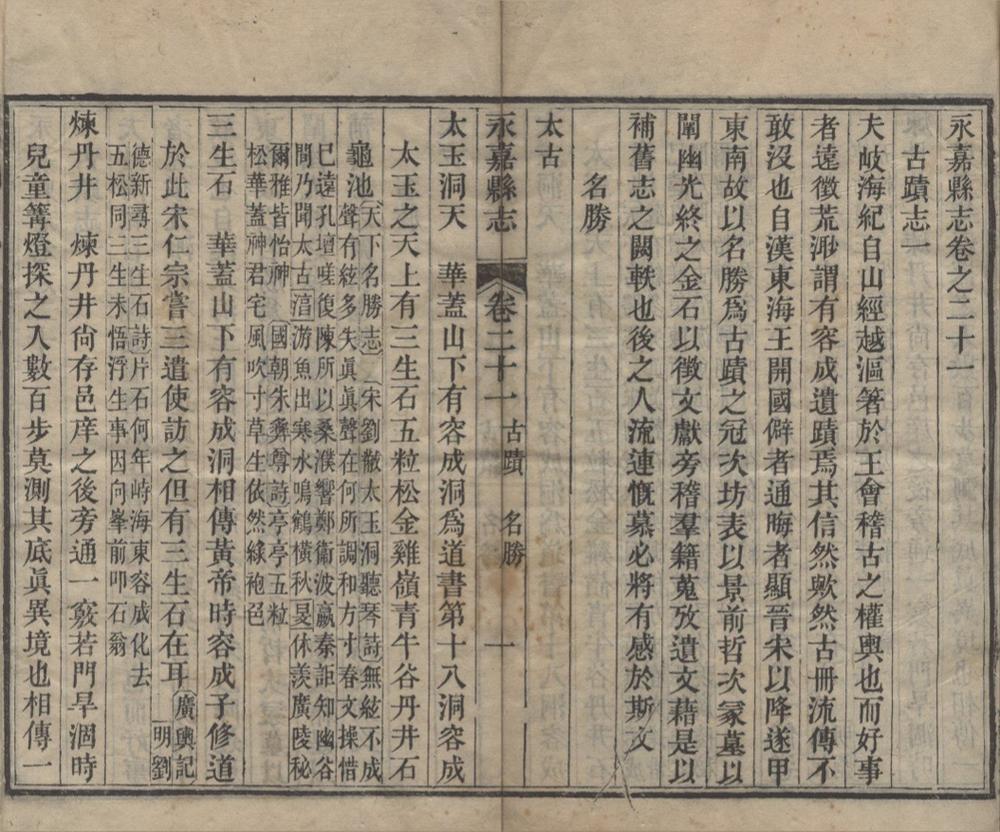 永嘉縣志卷之二十一
古蹟志一
夫岐海紀自山經越漚箸於王會稽古之權輿也而好事
者遠徵荒渺謂有容成遺蹟焉其信然歟然古冊流傳不
敢沒也自漢東海王開國僻者通晦者顯晉宋以降遂甲
東南故以名勝爲古蹟之冠次坊表以景前哲次冢墓以
闡幽光終之金石以徵文獻旁稽羣籍蒐攷遺文藉是以
補舊志之闕軼也後之人流連慨慕必將有感於斯文
名勝
太古
永嘉縣志 卷二十一 古蹟 名勝 一
太玉洞天 華蓋山下有容成洞爲道書第十八洞容成
太玉之天上有三生石五粒松金雞嶺青牛谷丹井石
龜池 天下名勝志 宋劉黻太玉洞聽琴詩 無絃不成
聲有絃多失眞眞聲在何所調和方寸春文操惜
巳遠孔壇嗟復陳所以桑濮響鄭衞波嬴秦詎知幽谷
間乃聞太古湻游魚出寒水鳴鶴橫秋旻休羨廣陵秘
爾雅皆怡神 國朝朱彝尊詩 亭亭五粒
松華蓋神君宅風吹寸草生依然綠袍色
三生石 華蓋山下有容成洞相傳黃帝時容成子修道
於此宋仁宗嘗三遣使訪之但有三生石在耳 廣輿記 明劉
德新尋三生石詩 片石何年峙海東容成化去
五松同三生未悟浮生事因向峯前叩石翁
煉丹井 煉丹井尙存邑庠之後旁通一竅若門旱涸時
兒童篝燈探之入數百步莫測其底眞異境也相傳一